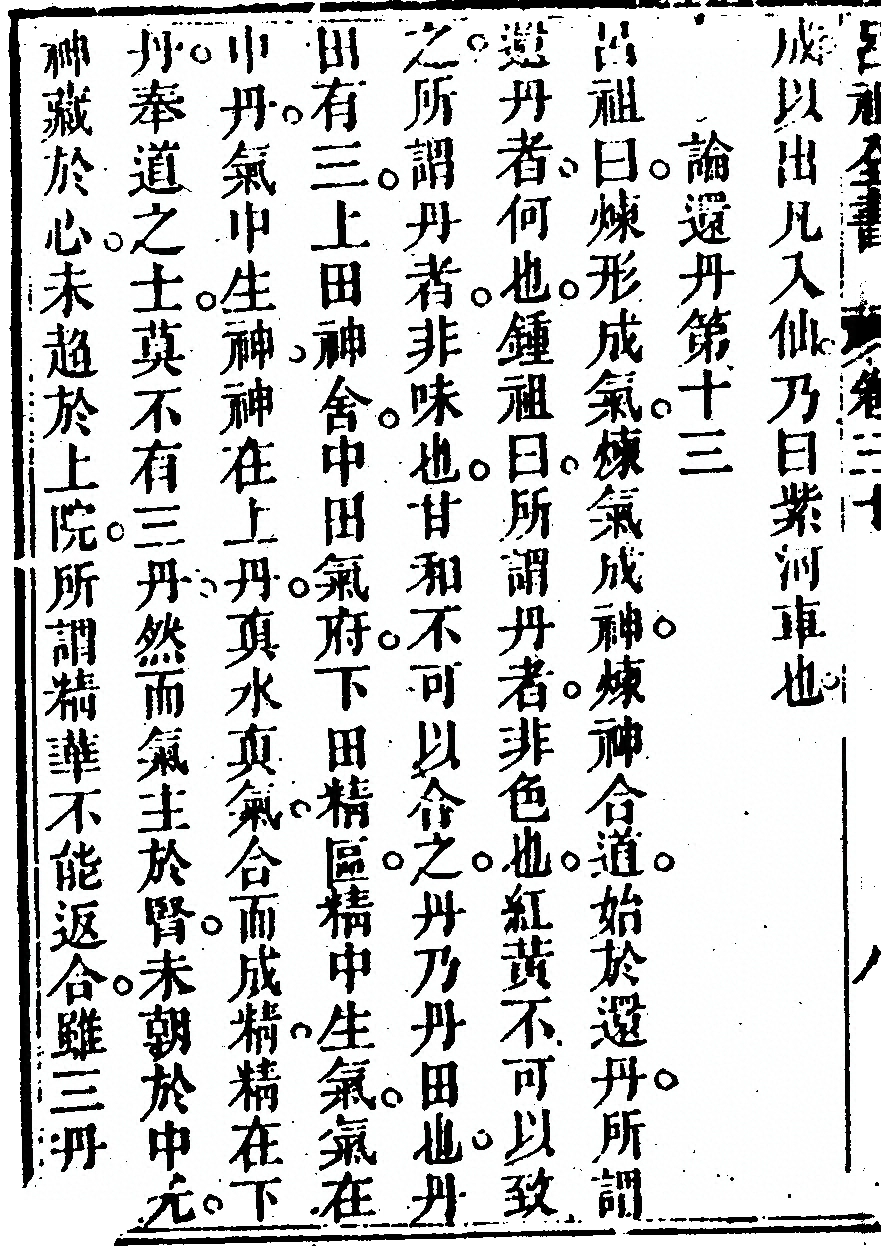 呂祖全書　卷三十　八
成以出凡入仙。乃曰紫河車也。
論還丹第十三
呂祖曰。煉形成氣。煉氣成神。煉神合道。始於還丹。所謂
還丹者。何也。鍾祖曰。所謂丹者。非色也。紅黃不可以致
之。所謂丹者。非味也。甘和不可以合之。丹乃丹田也。丹
田有三。上田神舍。中田氣府。下田精區。精中生氣。氣在
中丹。氣中生神。神在上丹。真水真氣。合而成精。精在下
丹。奉道之士。莫不有三丹。然而氣主於腎。未朝於中元。
神藏於心。未趨於上院。所謂精華不能返合。雖三丹